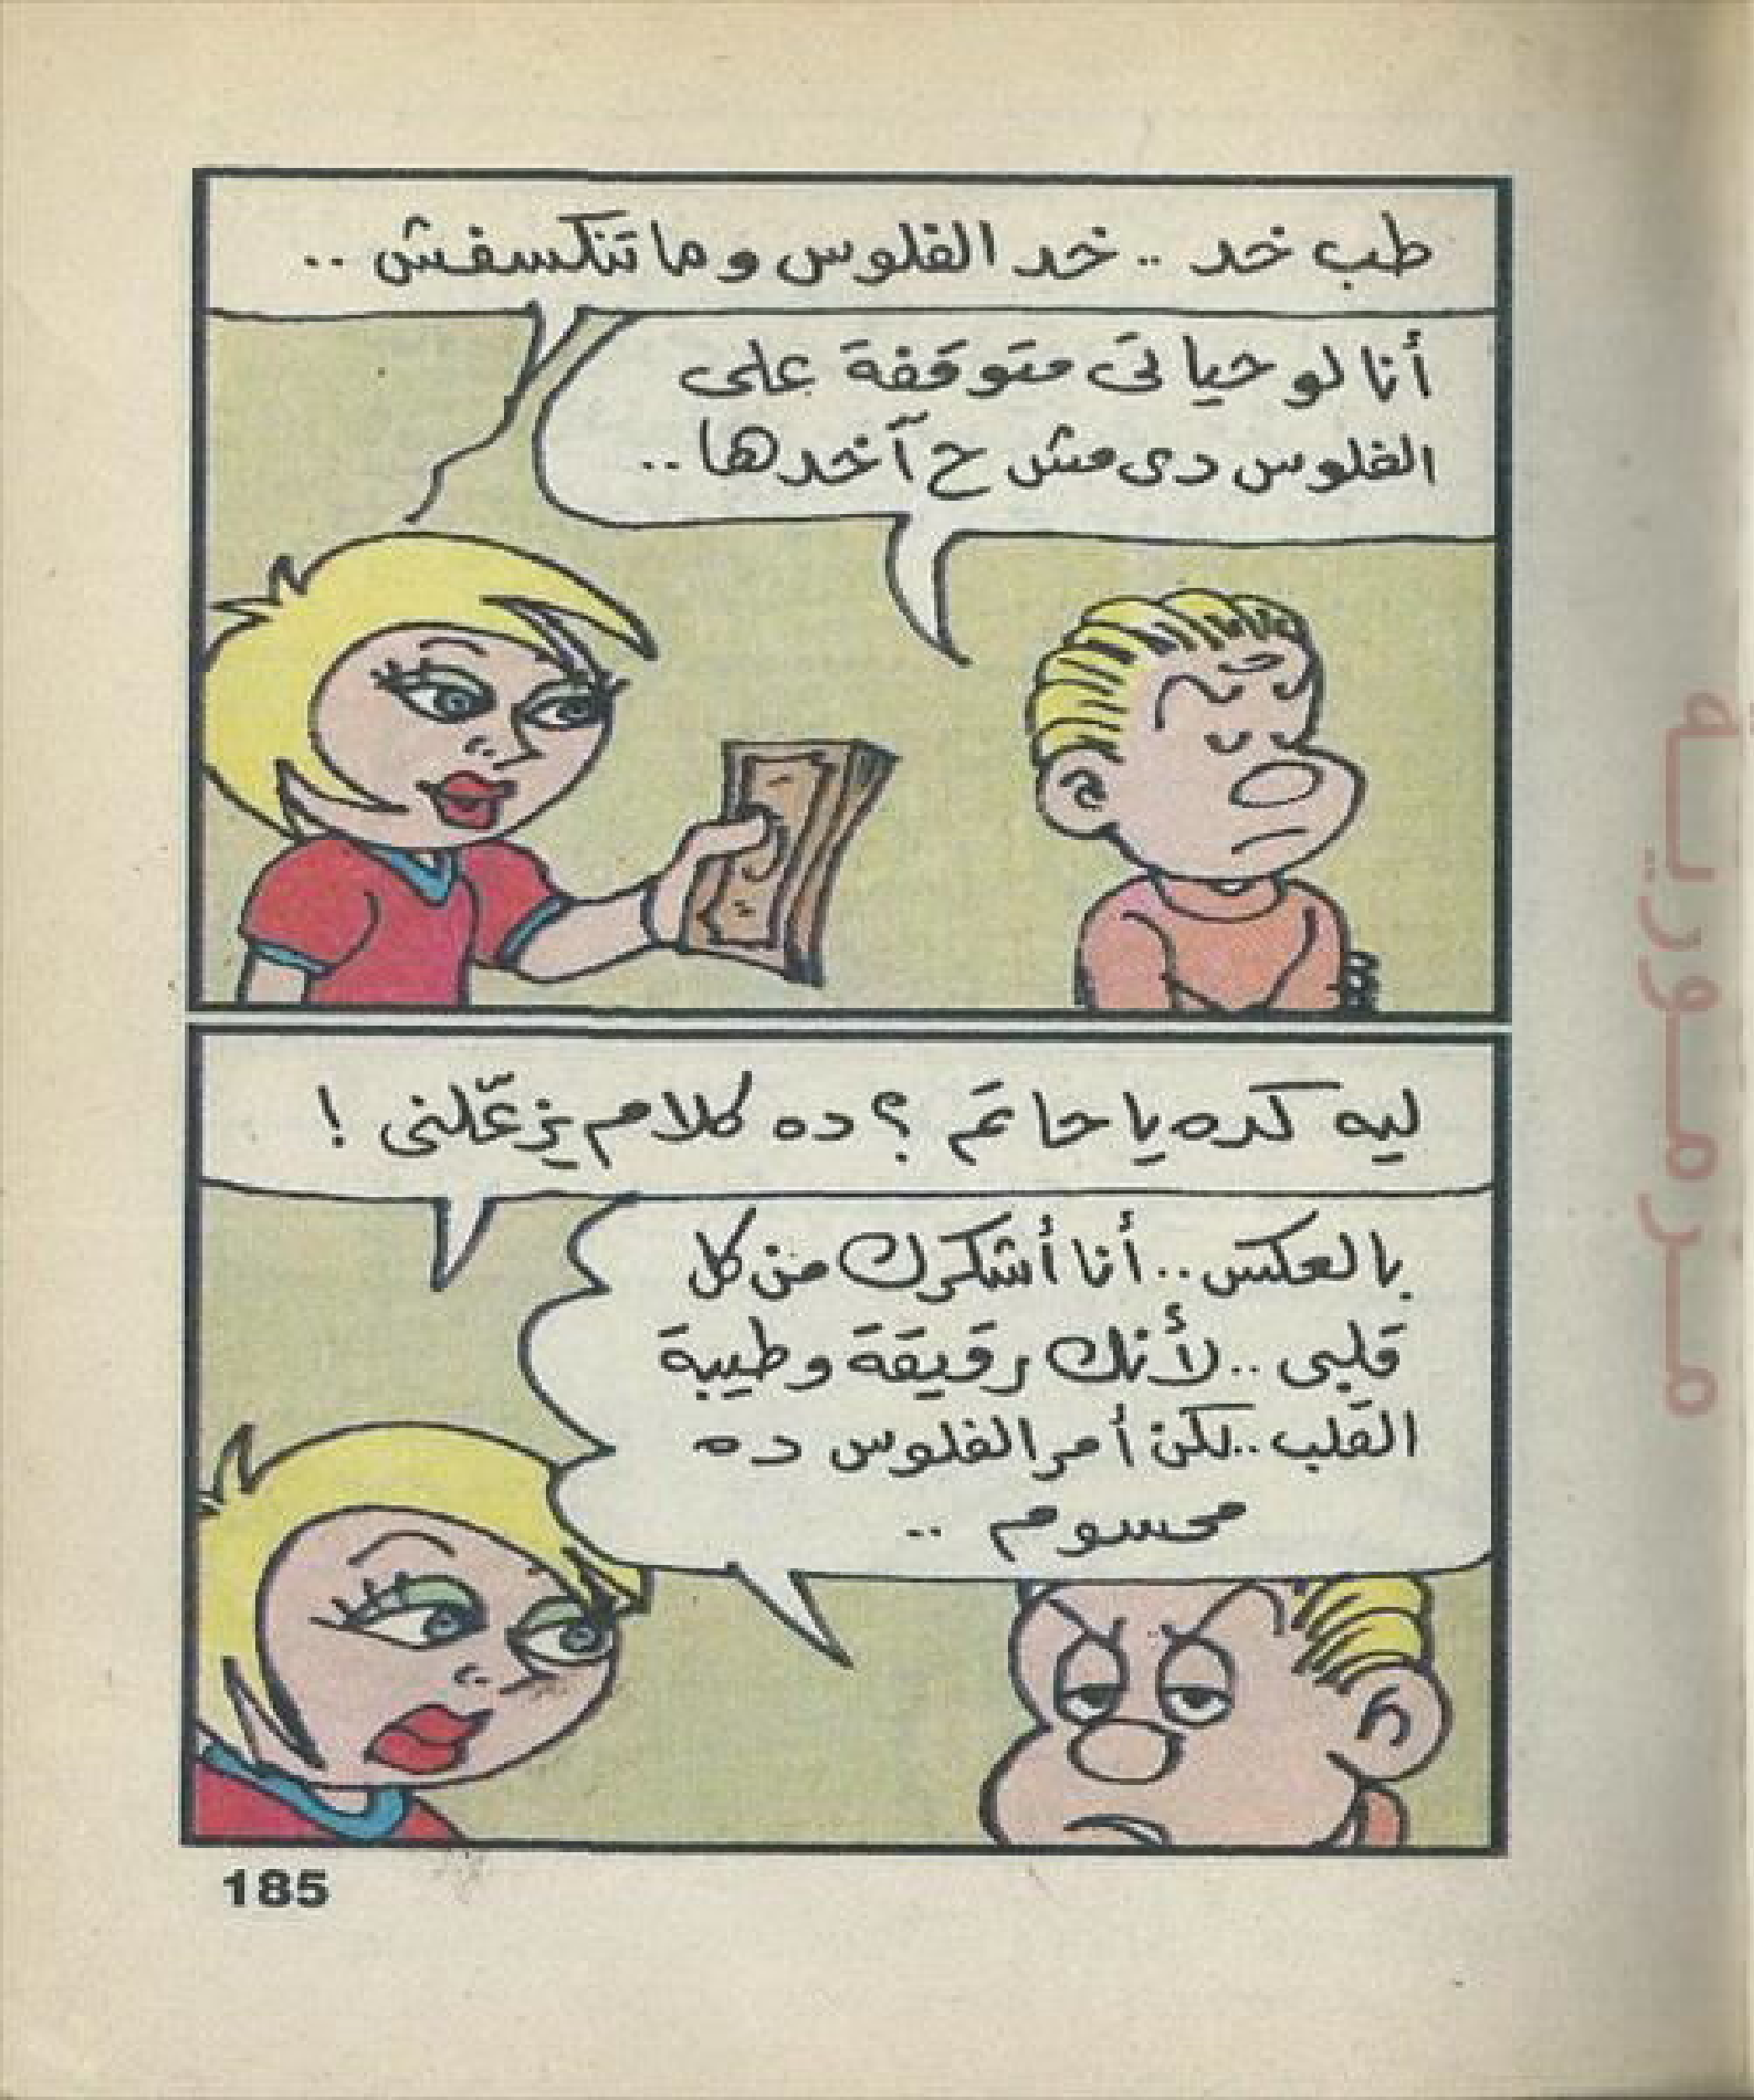 طب خد .. خد الفلوس وما تنكسفش ..
أنا لو حياتى متوقفة على
الفلوس دى مش ح آخدها ..
ليه كده يا حاتم ؟ ده كلام يزعّلنى !
بالعكس .. أنا أشكرك من كل
قلبى .. لأنك رقيقة وطيبة
القلب .. لكن أمر الفلوس ده
محسوم ..
185
مزمورية